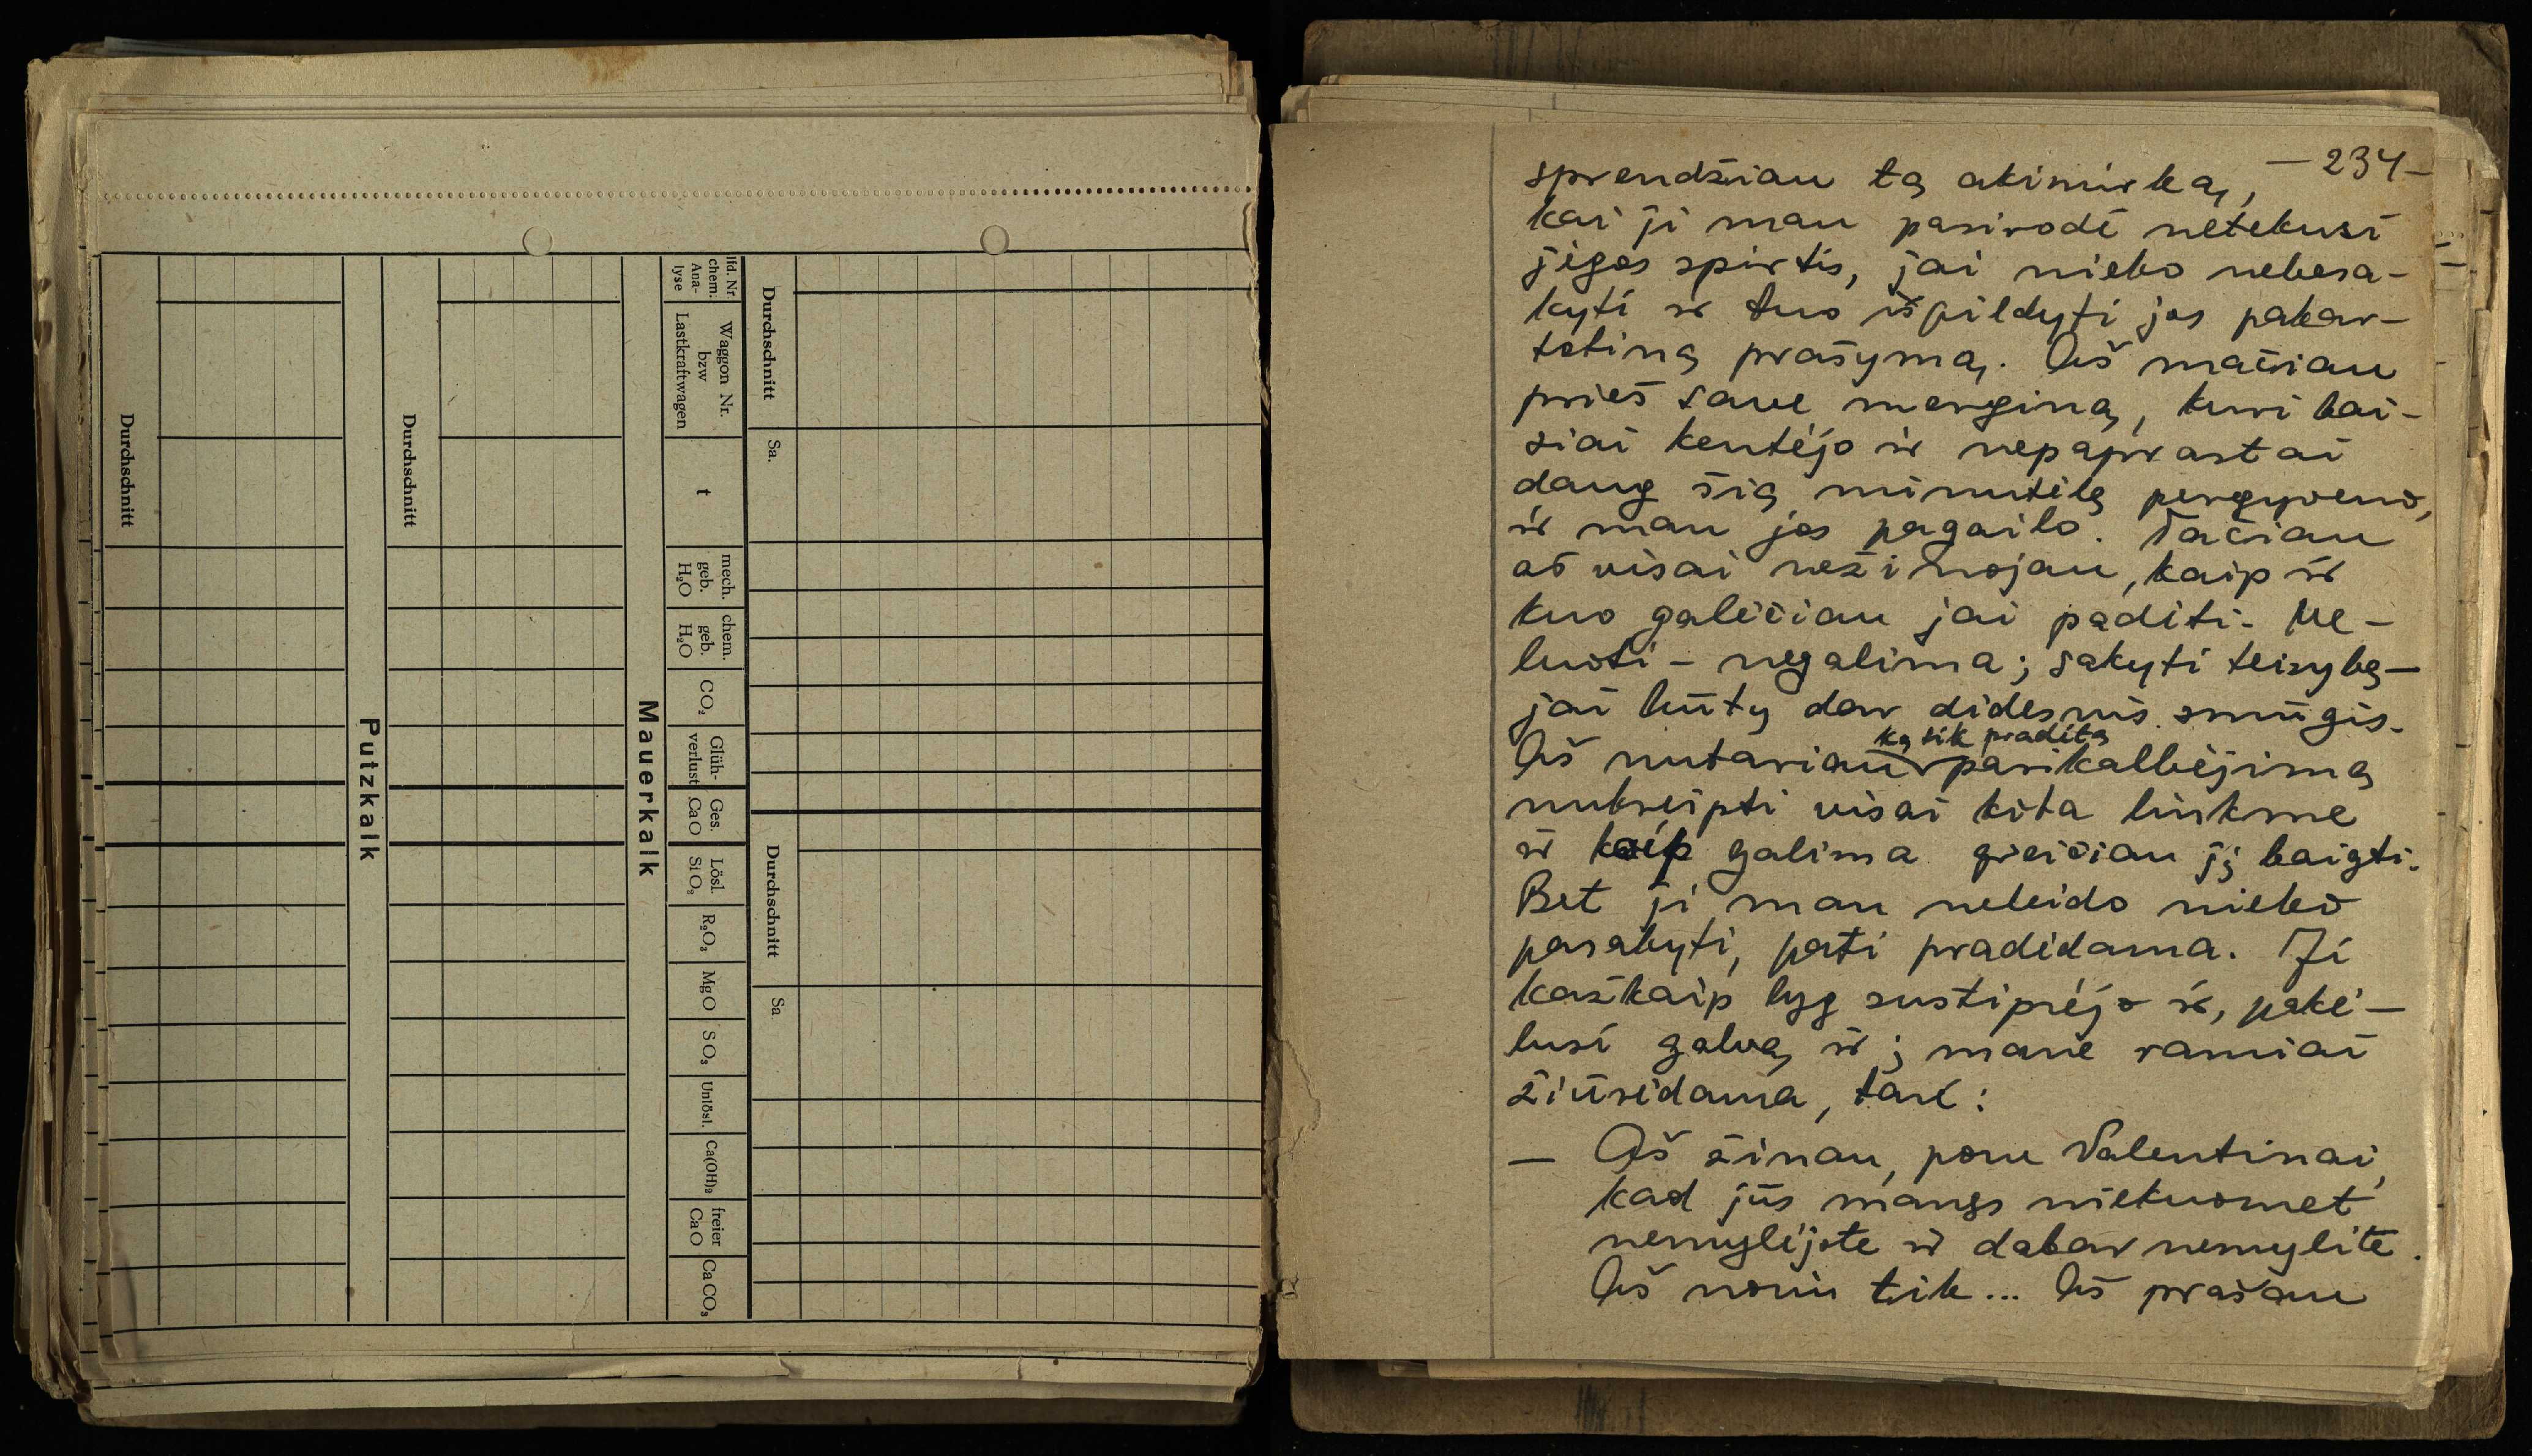 Durchschnitt
Sa.
Durchschnitt
Sa
lfd. Nr.
chem.
Ana-
lyse
Waggon Nr.
bzw
Lastkraftwagen
t
mech.
geb.
H₂O
chem.
geb.
H₂O
CO₂
Glüh-
verlust
Ges.
CaO
Lösl.
SiO₂
R₂O₃
MgO
SO₃
Unlösl.
Ca(OH)₂
freier
CaO
CaCO₃
Mauerkalk
Durchschnitt
Putzkalk
Durchschnitt
—234—
sprendžiau tą akimirką,
kai ji man pasirodė netekusi
jėgos spirtis, jai nieko nebesa-
kyti ir tuo išpildyti jos pakar-
totiną prašymą. Aš mačiau
prieš save merginą, kuri bai-
siai kentėjo ir nepaprastai
daug šią minutėlę pergyveno,
ir man jos pagailo. Tačiau
aš visai nežinojau, kaip ir
kuo galėčiau jai padėti. Me-
luoti – negalima; sakyti teisybę—
jai būtų dar didesnis smūgis.
ką tik pradėtą
Aš nutariau pasikalbėjimą
nukreipti visai kita linkme
ir kaip galima greičiau jį baigti.
Bet ji man neleido nieko
pasakyti, pati pradėdama. Ji
kažkaip lyg sustiprėjo ir, pakė-
lusi galvą ir į mane ramiai
žiūrėdama, tarė:
— Aš žinau, pone Valentinai,
kad jūs manęs niekuomet
nemylėjote ir dabar nemylite.
Aš noriu tik... Aš prašau